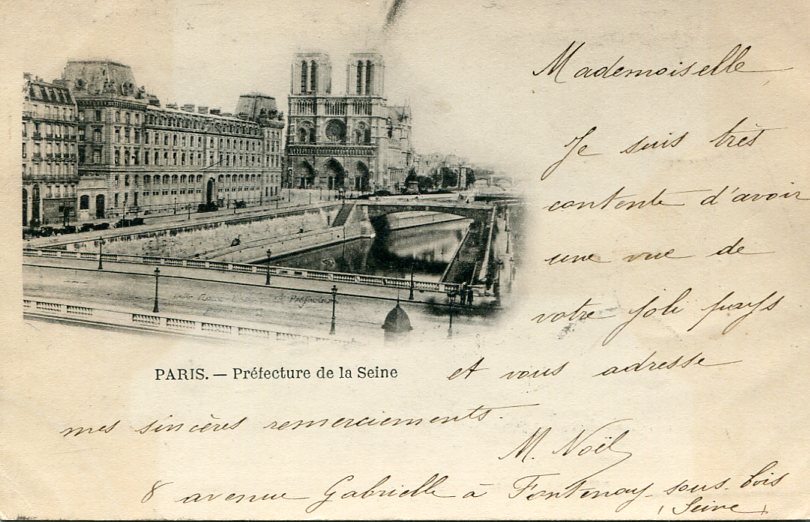 Mademoiselle
Je suis très
contente d'avoir
une vue de
votre joli pays
PARIS. — Préfecture de la Seine
et vous adresse
mes sincères remerciements.
M. Noël
8 avenue Gabrielle à Fontenay-sous-bois
(Seine)